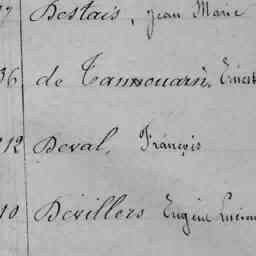 Destais, Jean Marie
36 de Tannouarn, Ernest
212 Deval, François
10 Devillers Eugène Lucien